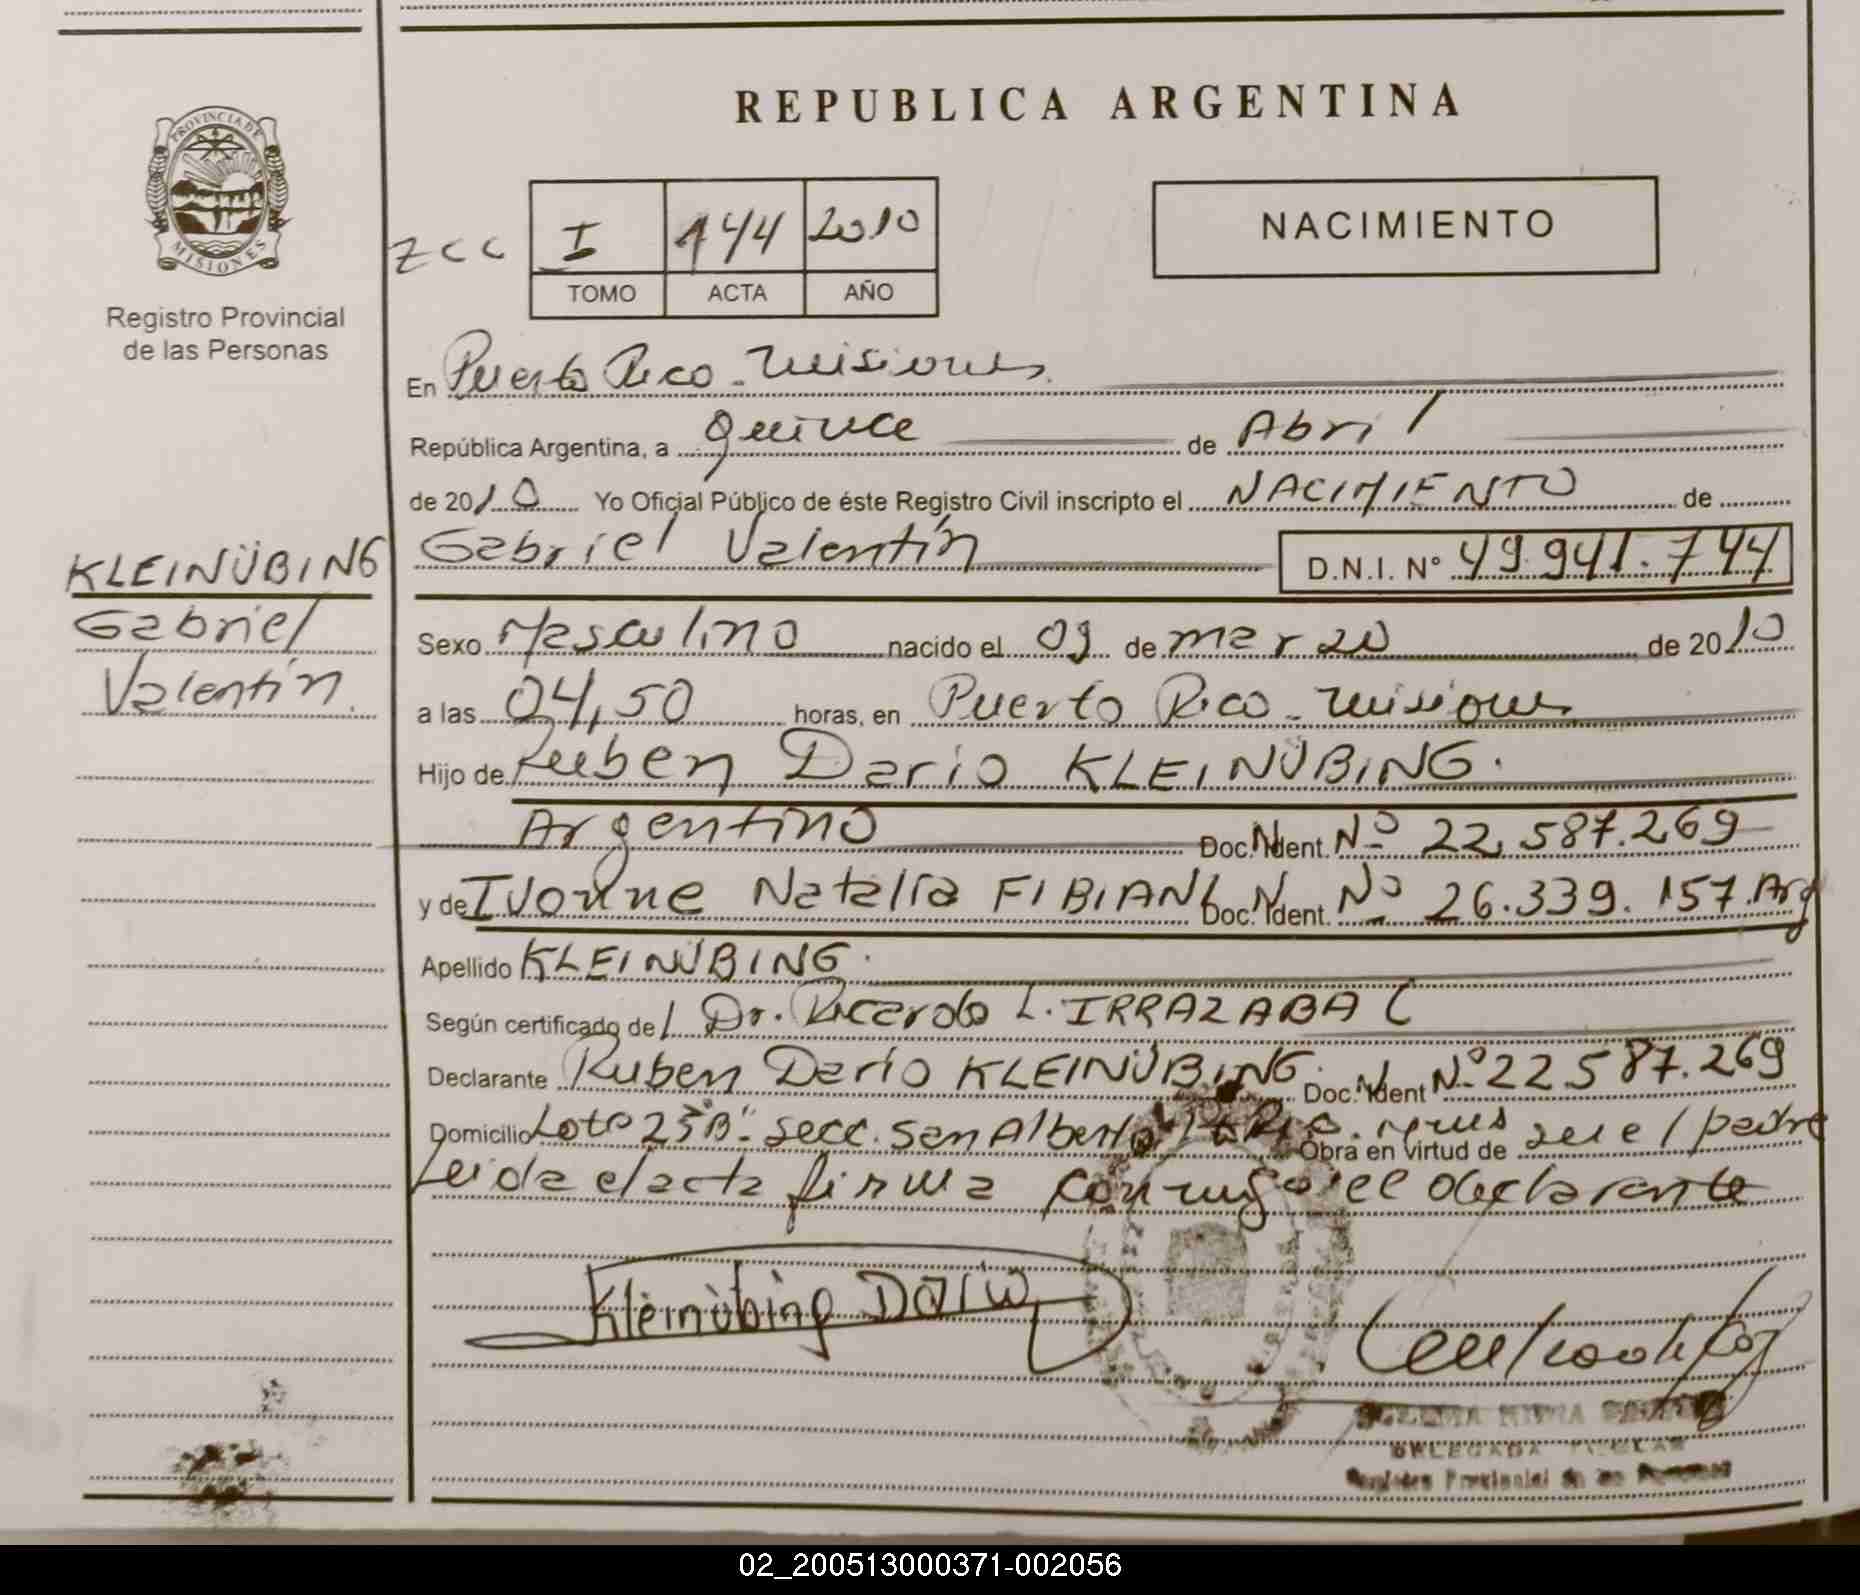 REPUBLICA ARGENTINA
PROVINCIA DE
MISIONES
Registro Provincial
de las Personas
ZCC
I 144 2010
TOMO ACTA AÑO
NACIMIENTO
En Puerto Rico - Misiones
República Argentina, a quince de Abril
de 2010 Yo Oficial Público de éste Registro Civil inscripto el NACIMIENTO de
Gabriel Valentín D.N.I. Nº 49.941.744
KLEINÜBING
Gabriel
Valentín.
Sexo Masculino nacido el 09 de marzo de 2010
a las 04,50 horas, en Puerto Rico - Misiones
Hijo de Ruben Dario KLEINÜBING.
Argentino Doc. Ident. Nº 22.587.269
y de Ivonne Natalia FIBIANI Doc. Ident. Nº 26.339.157. Arg
Apellido KLEINÜBING.
Según certificado del Dr. Ricardo L. IRRAZABAL
Declarante Ruben Dario KLEINÜBING. Doc. Ident Nº 22587.269
Domicilio Lote 23"B". Secc. San Alberto Obra en virtud de ser el padre
Leida el acta firma conmigo el declarante
Kleinübing Dario
DELEGADA TITULAR
Registro Provincial de las Personas
02_200513000371-002056